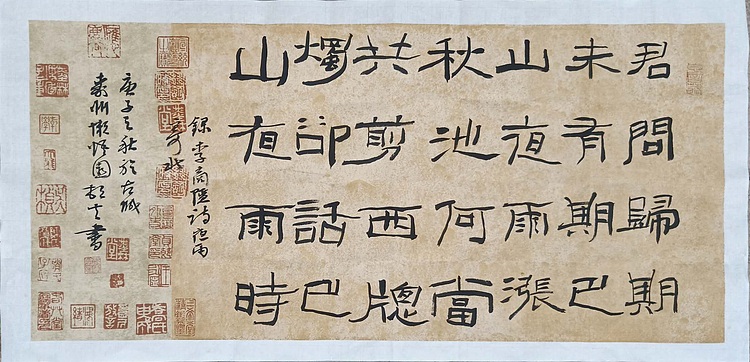 君問歸期
未有期巴
山夜雨漲
秋池何當
共剪西牕
燭卻話巴
山夜雨時
錄李商隱詩夜雨
寄北
庚子之秋於古城
襄州懶悟園書